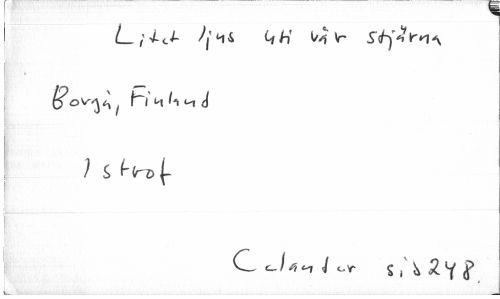 Litet ljus uti vår stjärna
Borgå, Finland
1 strof
Calander sid 248.